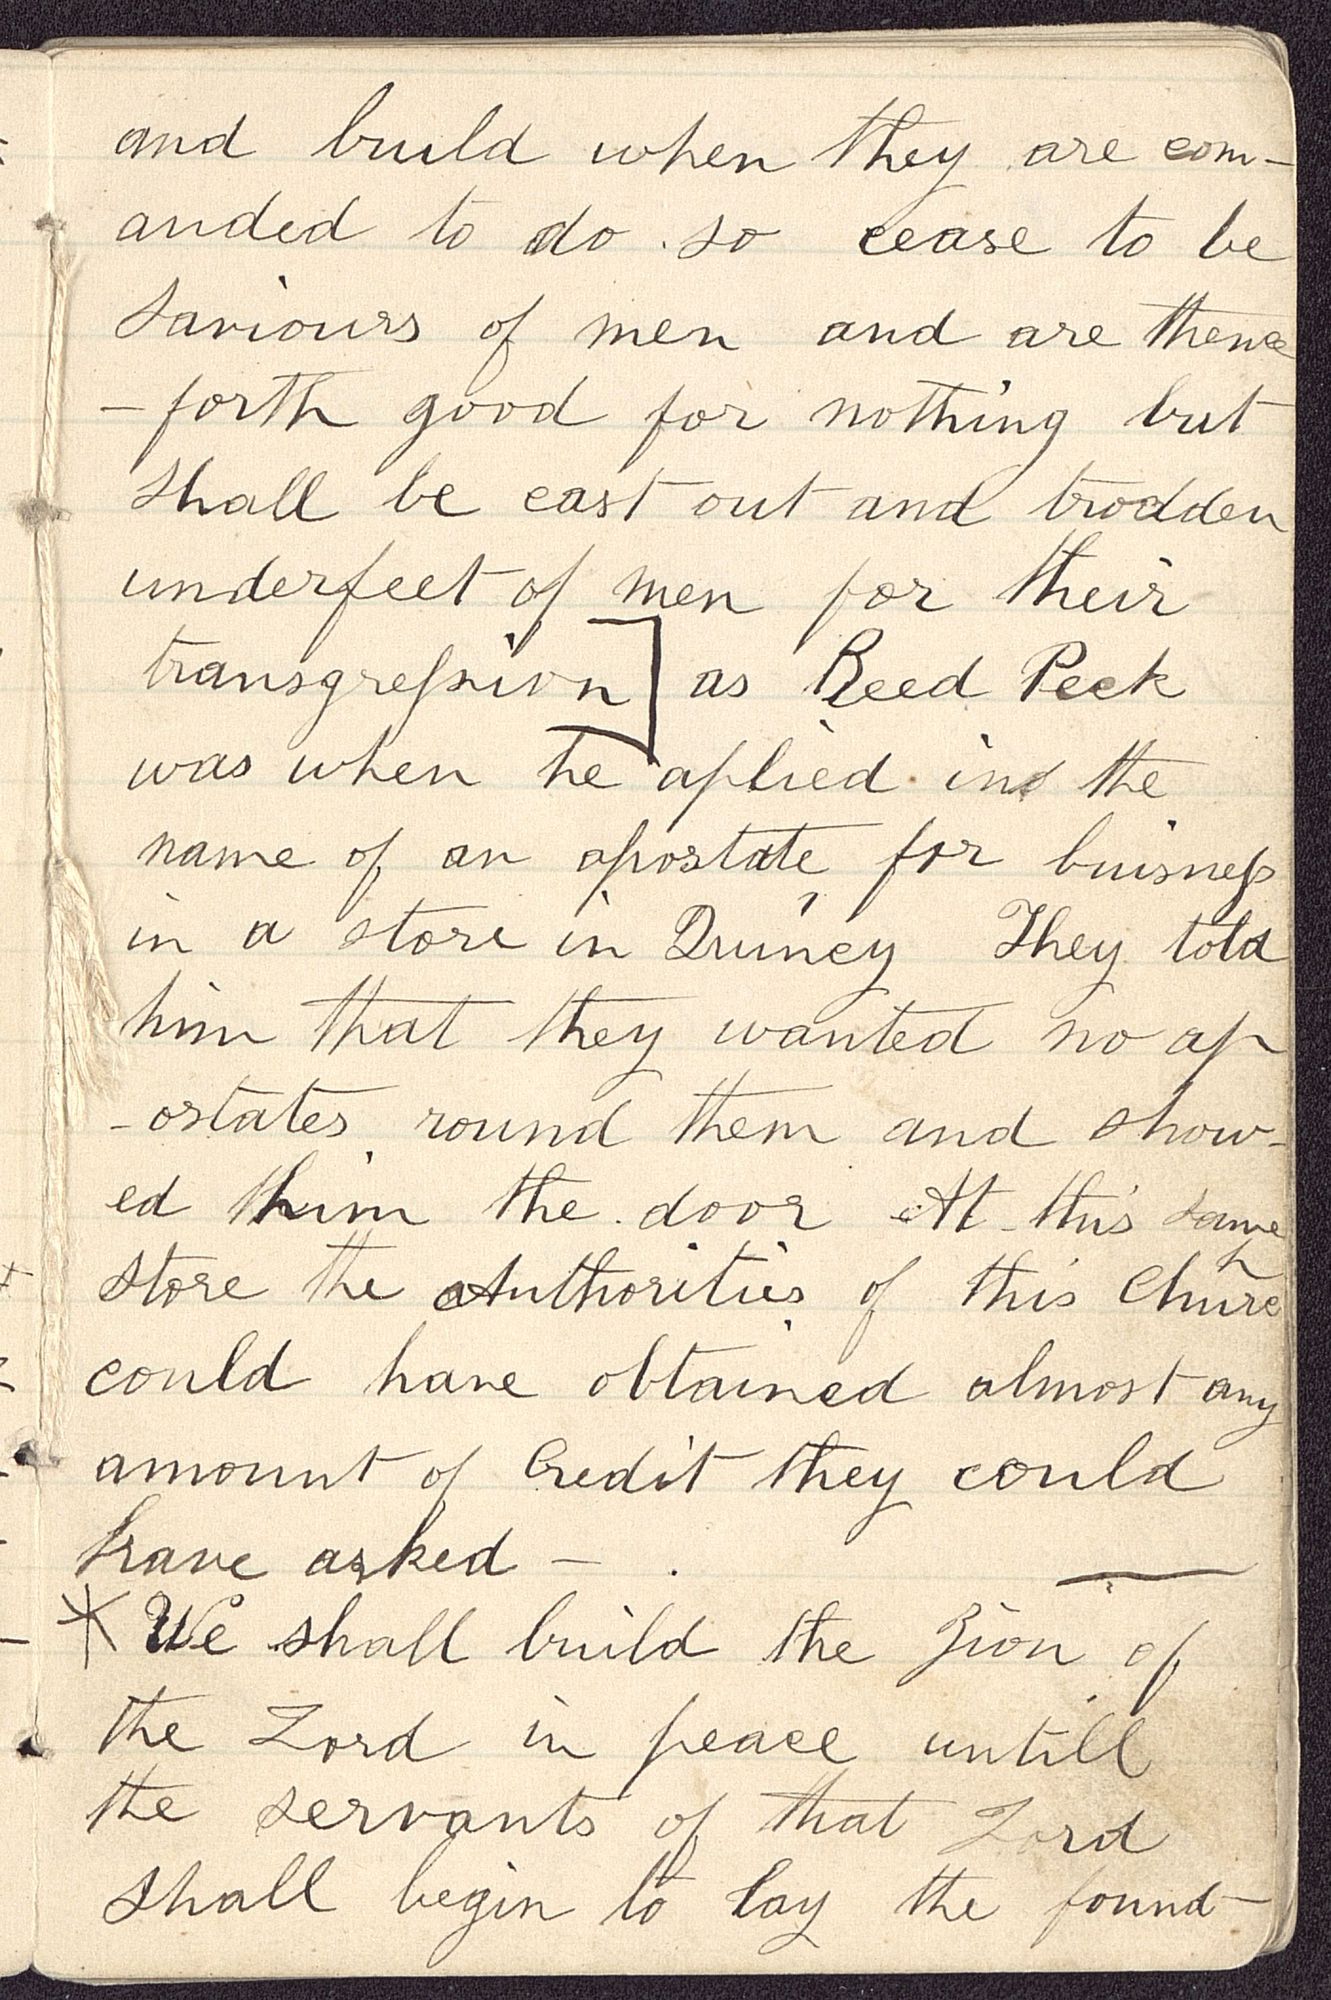 and build when they are com-
anded to do so cease to be
saviours of men and are thence
-forth good for nothing but
shall be cast out and trodden
underfeet of men for their
transgression] as Reed Peck
was when he aplied in the
name of an apostate for buisness
in a store in Quincy They told
him that they wanted no ap
-ostates round them and show-
ed him the door At this same
store the Authorities of this Church
could have obtained almost any
amount of Credit they could
have asked —
* We shall build the Zion of
the Lord in peace untill
the servants of that Lord
shall begin to lay the found-